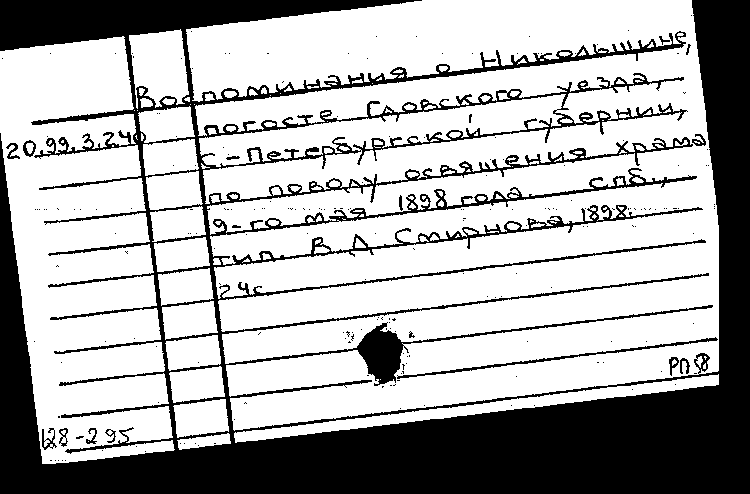 Воспоминания о Никольщине,
20.99.3.240 погосте Гдовского уезда,
С.-Петербургской губернии,
по поводу освящения храма
9-го мая 1898 года. СПб.,
тип. В. Д. Смирнова, 1898.
24 с.
РП 58
128-295